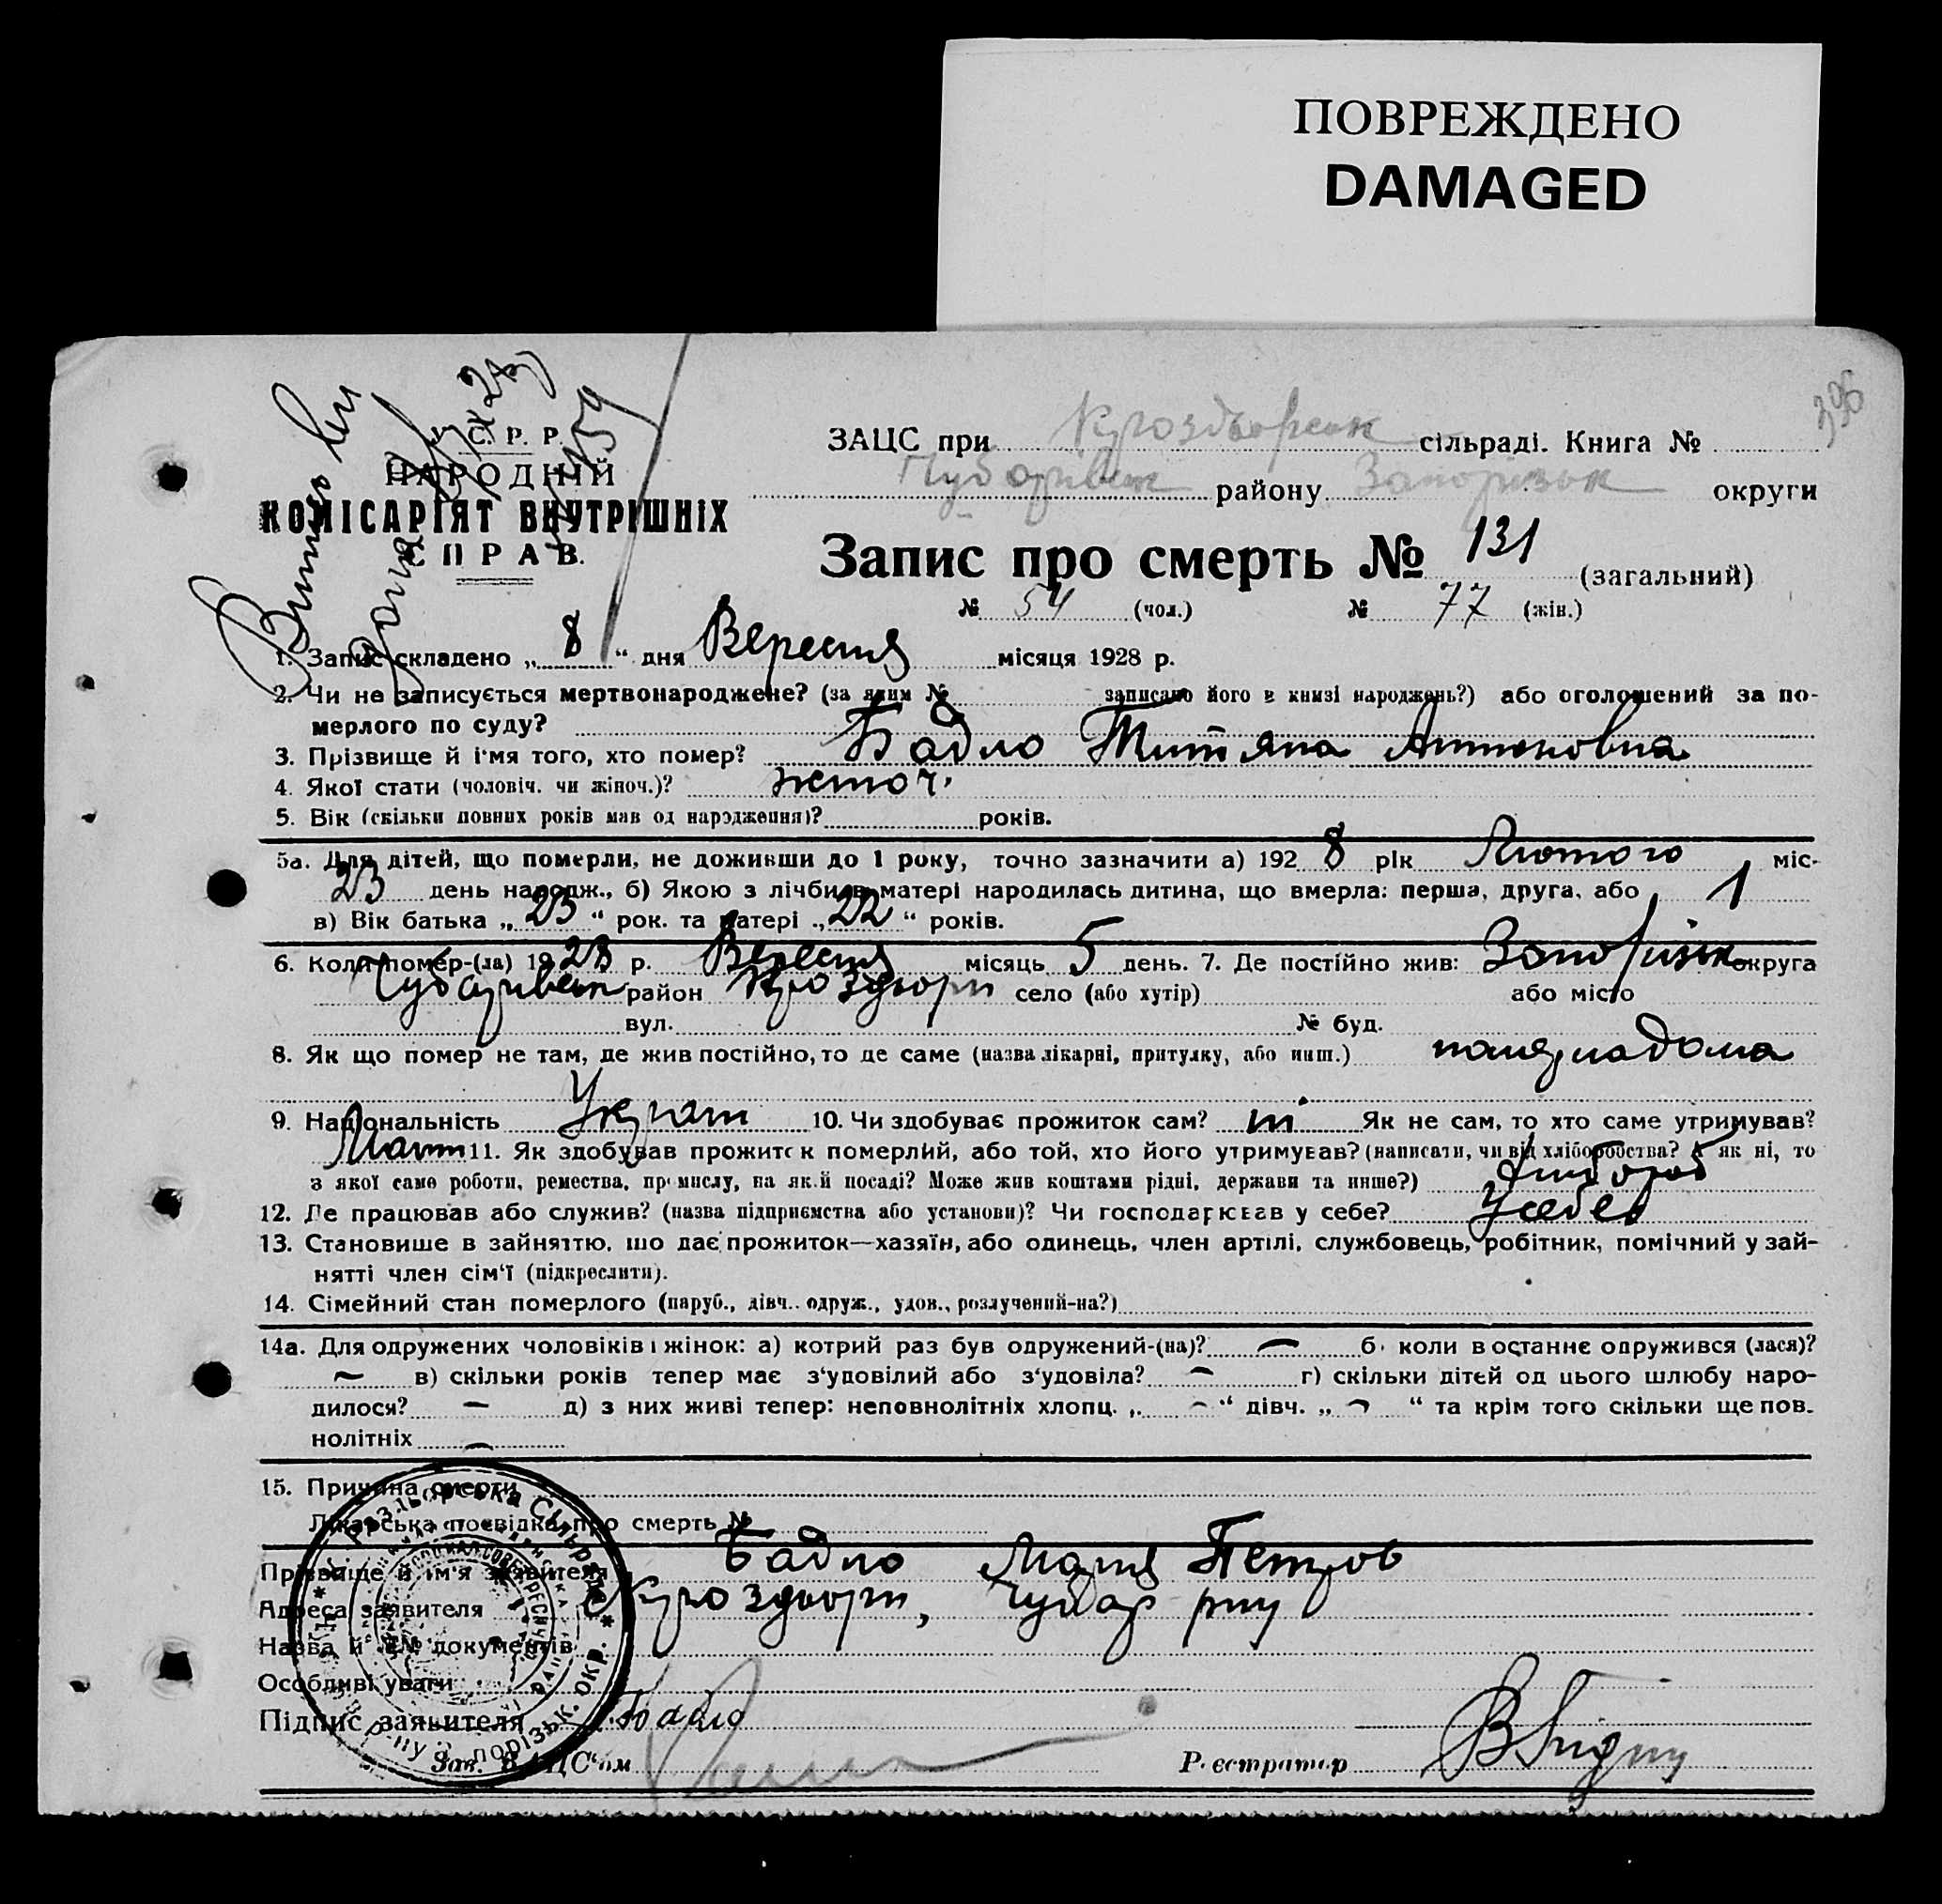 ПОВРЕЖДЕНО
DAMAGED
396
У. С. Р. Р.
НАРОДНІЙ
КОМІСАРІЯТ ВНУТРІШНІХ
СПРАВ.
ЗАЦС при сільраді. Книга №
району Запорізьк округи
Запис про смерть № 131 (загальний)
№ 54 (чол.) № 77 (жін.)
1. Запис складено „ 8 “ дня Вересня місяця 1928 р.
2. Чи не записується мертвонароджене? (за яким № записано його в книзі народжень?) або оголошений за по-
мерлого по суду?
3. Прізвище й ім'я того, хто помер? Бабло Титяна Антоновна
4. Якої стати (чоловіч. чи жіноч.)? жіноч.
5. Вік (скільки повних років мав од народження)? років.
5а. Для дітей, що померли, не доживши до 1 року, точно зазначити а) 192 8 рік Лютого міс-
23 день народж., б) Якою з лічби в матері народилась дитина, що вмерла: перша, друга, або 1
в) Вік батька „ 23 “ рок. та матері „ 22 “ років.
6. Коли помер-(ла) 19 28 р. Вересня місяць 5 день. 7. Де постійно жив: Запорізьк округа
Чубарівськ район село (або хутір) або місто
вул. № буд.
8. Як що помер не там, де жив постійно, то де саме (назва лікарні, притулку, або инш.) дома
9. Національність Украт 10. Чи здобуває прожиток сам? ні Як не сам, то хто саме утримував?
Мати 11. Як здобував прожиток померлий, або той, хто його утримував? (написати, чи від хліборобства? А як ні, то
з якої саме роботи, ремества, промислу, на якій посаді? Може жив коштами рідні, держави та инше?) Хлібороб
12. Де працював або служив? (назва підприємства або установи)? Чи господарював у себе? У себе
13. Становище в зайняттю, що дає прожиток—хазяїн, або одинець, член артілі, службовець, робітник, помічний у зай-
нятті член сім'ї (підкреслити).
14. Сімейний стан померлого (паруб., дівч., одруж., удов., розлучений-на?)
14а. Для одружених чоловіків і жінок: а) котрий раз був одружений-(на)? — б) коли в останнє одружився (лася)?
— в) скільки років тепер має з'удовілий або з'удовіла? — г) скільки дітей од цього шлюбу наро-
дилося? — д) з них живі тепер: неповнолітніх хлопц. „ — “ дівч. „ — “ та крім того скільки ще пов-
нолітніх —
15. Причина смерти
Лікарська посвідка про смерть №
Прізвище й ім'я заявителя Бабло Марія Петров
Адреса заявителя Чубар р-ну
Назва й №№ документів
Особливі уваги
Підпис заявителя Бабло
Зав. ЗАЦС'ом Реєстратор